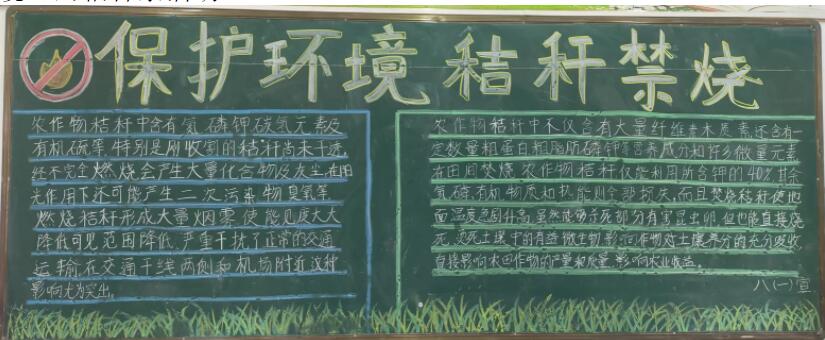 保护环境 秸秆禁烧
农作物秸秆中含有氮、磷、钾、碳、氢元素及
有机硫等。特别是刚收割的秸秆尚未干透，
经不完全燃烧会产生大量化合物及烟尘，在阳
光作用下还可能产生二次污染物臭氧等。
燃烧秸秆形成大量烟雾，使能见度大大
降低，可见范围降低，严重干扰了正常的交通
运输，在交通干线两侧和机场附近这种
影响尤为突出。
农作物秸秆中不仅含有大量纤维素木质素，还含有一
定数量粗蛋白粗脂肪磷钾等营养成分和许多微量元素
在田间焚烧农作物秸秆仅能利用所含钾的40%，其余
氮、磷、有机物质和热能则全部损失，而且焚烧秸秆使地
面温度急剧升高，虽然能够杀死部分有害昆虫卵，但也能直接烧
死、烫死土壤中的有益微生物，影响作物对土壤养分的充分吸收
直接影响农田作物的产量和质量，影响农业收益。
八(一)宣